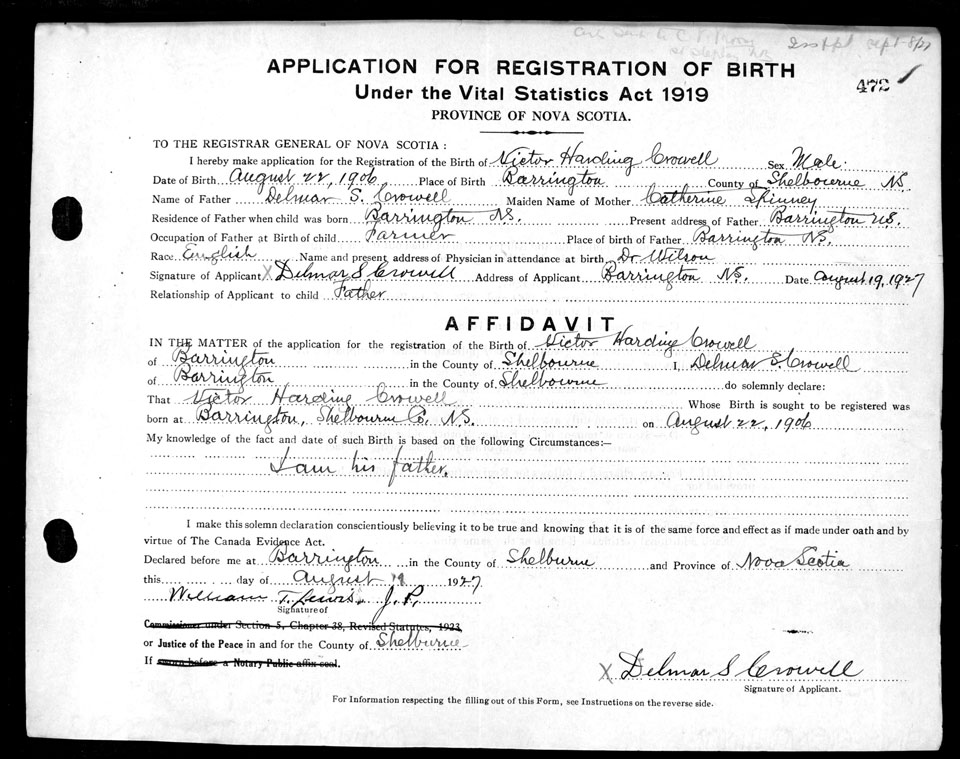 Sept 8/27
APPLICATION FOR REGISTRATION OF BIRTH
472
Under the Vital Statistics Act 1919
PROVINCE OF NOVA SCOTIA.
TO THE REGISTRAR GENERAL OF NOVA SCOTIA:
I hereby make application for the Registration of the Birth of Victor Harding Crowell Sex Male.
Date of Birth August 22, 1906 Place of Birth Barrington County of Shelbourne NS.
Name of Father Delmar S. Crowell Maiden Name of Mother Catherine Skinney
Residence of Father when child was born Barrington NS. Present address of Father Barrington N.S.
Occupation of Father at Birth of child Farmer Place of birth of Father Barrington NS.
Race English Name and present address of Physician in attendance at birth Dr Wilson
Signature of Applicant X Delmar S Crowell Address of Applicant Barrington NS. Date August 19, 1927
Relationship of Applicant to child Father
AFFIDAVIT
IN THE MATTER of the application for the registration of the Birth of Victor Harding Crowell
of Barrington in the County of Shelbourne I, Delmar S. Crowell
of Barrington in the County of Shelbourne do solemnly declare:
That Victor Harding Crowell Whose Birth is sought to be registered was
born at Barrington, Shelbourne Co. NS. on August 22, 1906
My knowledge of the fact and date of such Birth is based on the following Circumstances:—
I am his father.
I make this solemn declaration conscientiously believing it to be true and knowing that it is of the same force and effect as if made under oath and by
virtue of The Canada Evidence Act.
Declared before me at Barrington in the County of Shelburne and Province of Nova Scotia
this day of August 19 1927
William T. Lewis J.P.
Signature of
Commissioner under Section 5, Chapter 38, Revised Statutes, 1923
or Justice of the Peace in and for the County of Shelburne
If sworn before a Notary Public affix seal.
X Delmar S Crowell
Signature of Applicant.
For Information respecting the filling out of this Form, see Instructions on the reverse side.